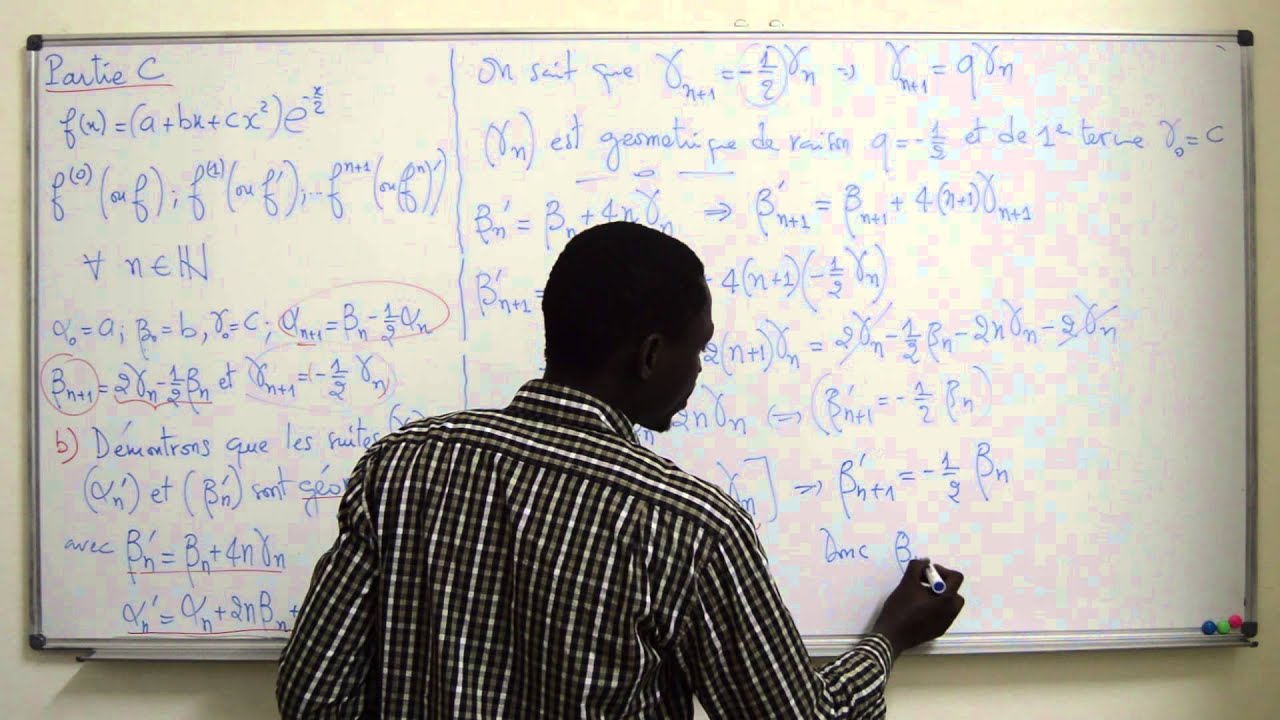 Partie C
f(x) = (a + bx + cx²)e^{-x/2}
f^{(0)} (ou f) ; f^{(1)} (ou f') ; ... f^{n+1} (ou (f^n)')
∀ n ∈ ℕ
α₀ = a ; β₀ = b, γ₀ = c ; α_{n+1} = β_n - 1/2 α_n
β_{n+1} = 2γ_n - 1/2 β_n et γ_{n+1} = (-1/2 γ_n)
b) Démontrons que les suites
(α'_n) et (β'_n) sont géo
avec β'_n = β_n + 4nγ_n
α'_n = α_n + 2nβ_n +
On sait que γ_{n+1} = -1/2 γ_n ⇒ γ_{n+1} = qγ_n
(γ_n) est geometrique de raison q = -1/2 et de 1er terme γ₀ = c
β'_n = β_n + 4nγ_n ⇒ β'_{n+1} = β_{n+1} + 4(n+1)γ_{n+1}
β'_{n+1} = + 4(n+1)(-1/2 γ_n)
2(n+1)γ_n = 2γ_n - 1/2 β_n - 2nγ_n - 2γ_n
2nγ_n ⇔ (β'_{n+1} = -1/2 β_n)
γ_n] ⇒ β'_{n+1} = -1/2 β_n
Donc β